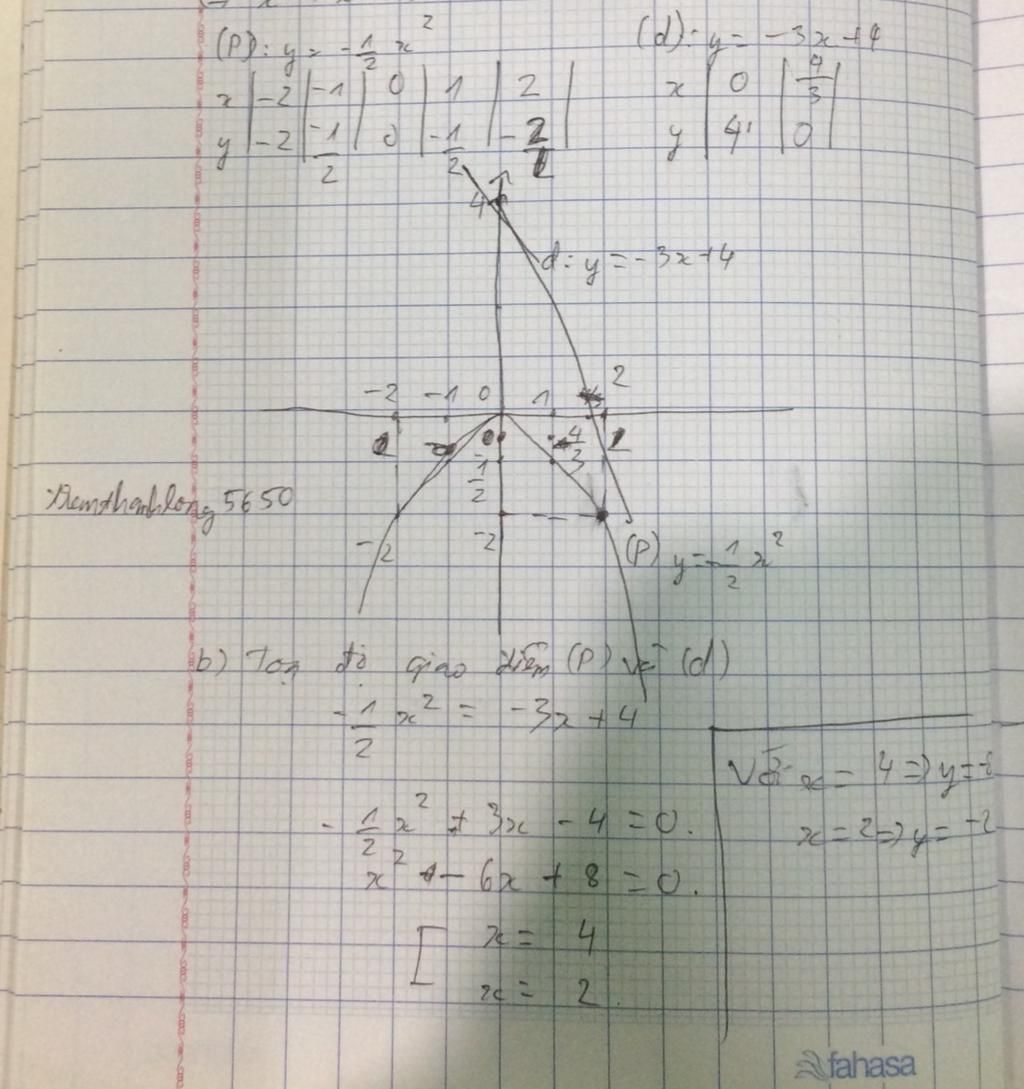 (P): y = -1/2 x²
x | -2 | -1 | 0 | 1 | 2 |
y | -2 | -1/2 | 0 | -1/2 | -2 |
(d): y = -3x+4
x | 0 | 4/3 |
y | 4 | 0 |
4
d: y = -3x+4
-2 -1 0 1 2
4/3
-1/2
-2
-2
(P) y = -1/2 x²
5650
b) Toạ độ giao điểm (P) và (d)
-1/2 x² = -3x + 4
-1/2 x² + 3x - 4 = 0.
x² - 6x + 8 = 0.
[ x = 4
x = 2.
Với x = 4 => y = -8
x = 2 => y = -2
fahasa